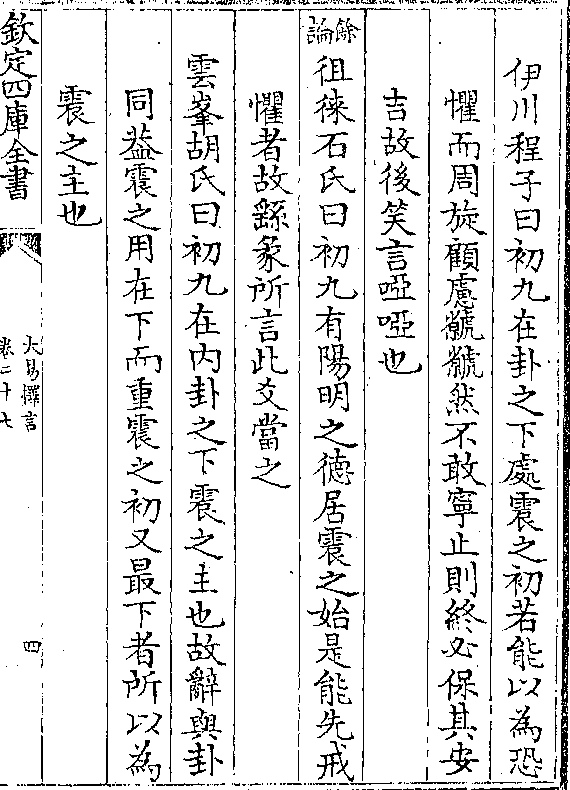 伊川程子曰初九在卦之下處震之初若能以為恐
懼而周旋顧慮虩虩然不敢寧止則終必保其安
吉故後笑言啞啞也
餘論
徂徠石氏曰初九有陽明之徳居震之始是能先戒
懼者故繇彖所言此爻當之
雲峯胡氏曰初九在内卦之下震之主也故辭與卦
同葢震之用在下而重震之初又最下者所以為
震之主也
欽定四庫全書
大易擇言
卷二十七
四